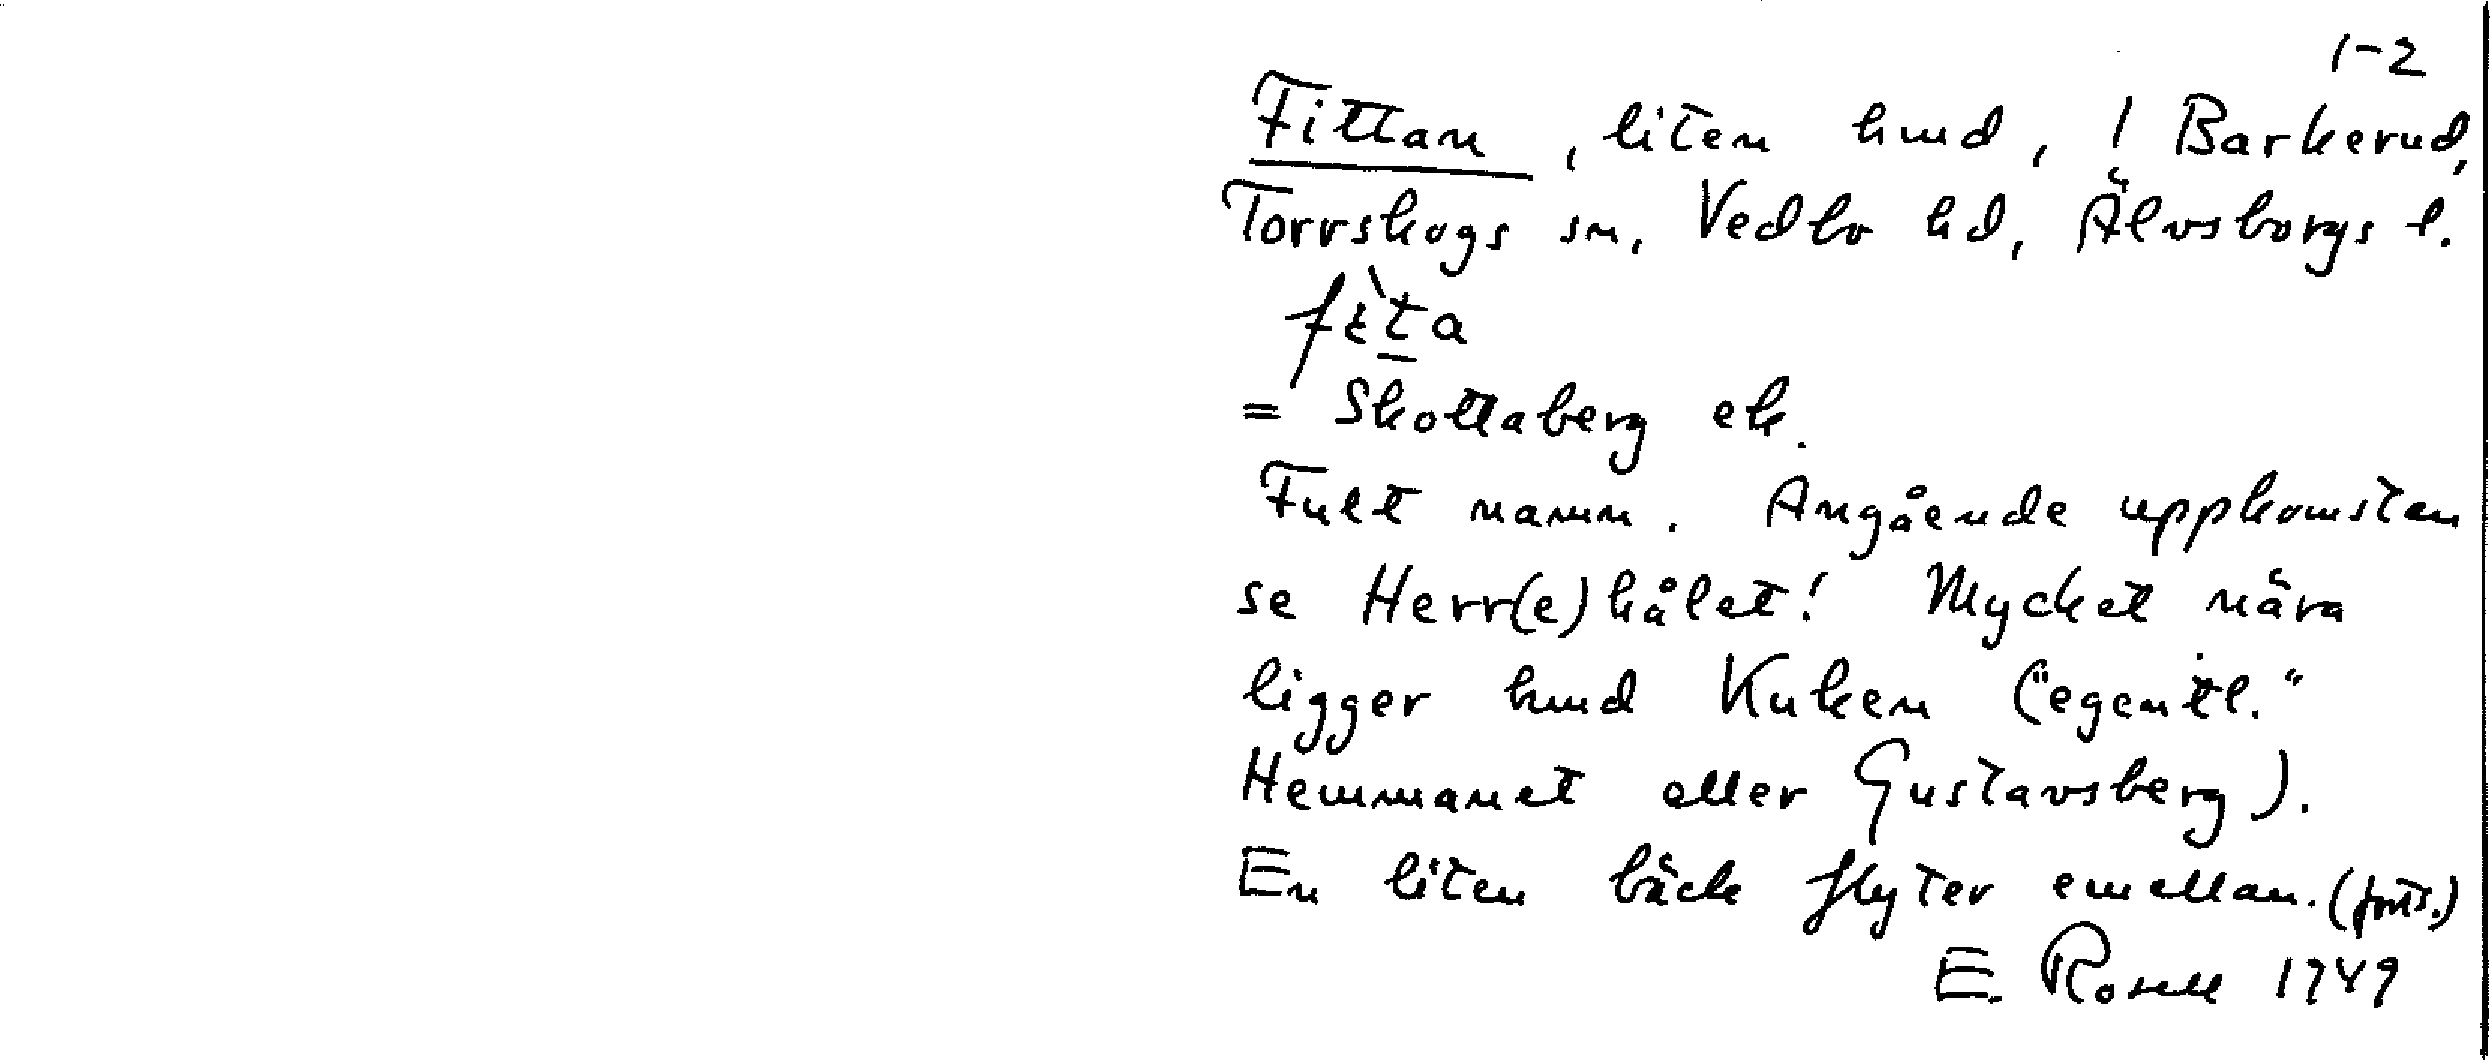 1-2
Fittan, liten hmd, ! Barkerud,
Torrskogs sn, Vedbo hd, Älvsborgs l.
fìta
= Skottaberg ek.
Fult namn. Angående uppkomsten
se Herr(e)hålet! Mycket nära
ligger hmd Kuken ("egentl."
Hemmanet eller Gustavsberg).
En liten bäck flyter emellan. (forts.)
E. Rosell 1949